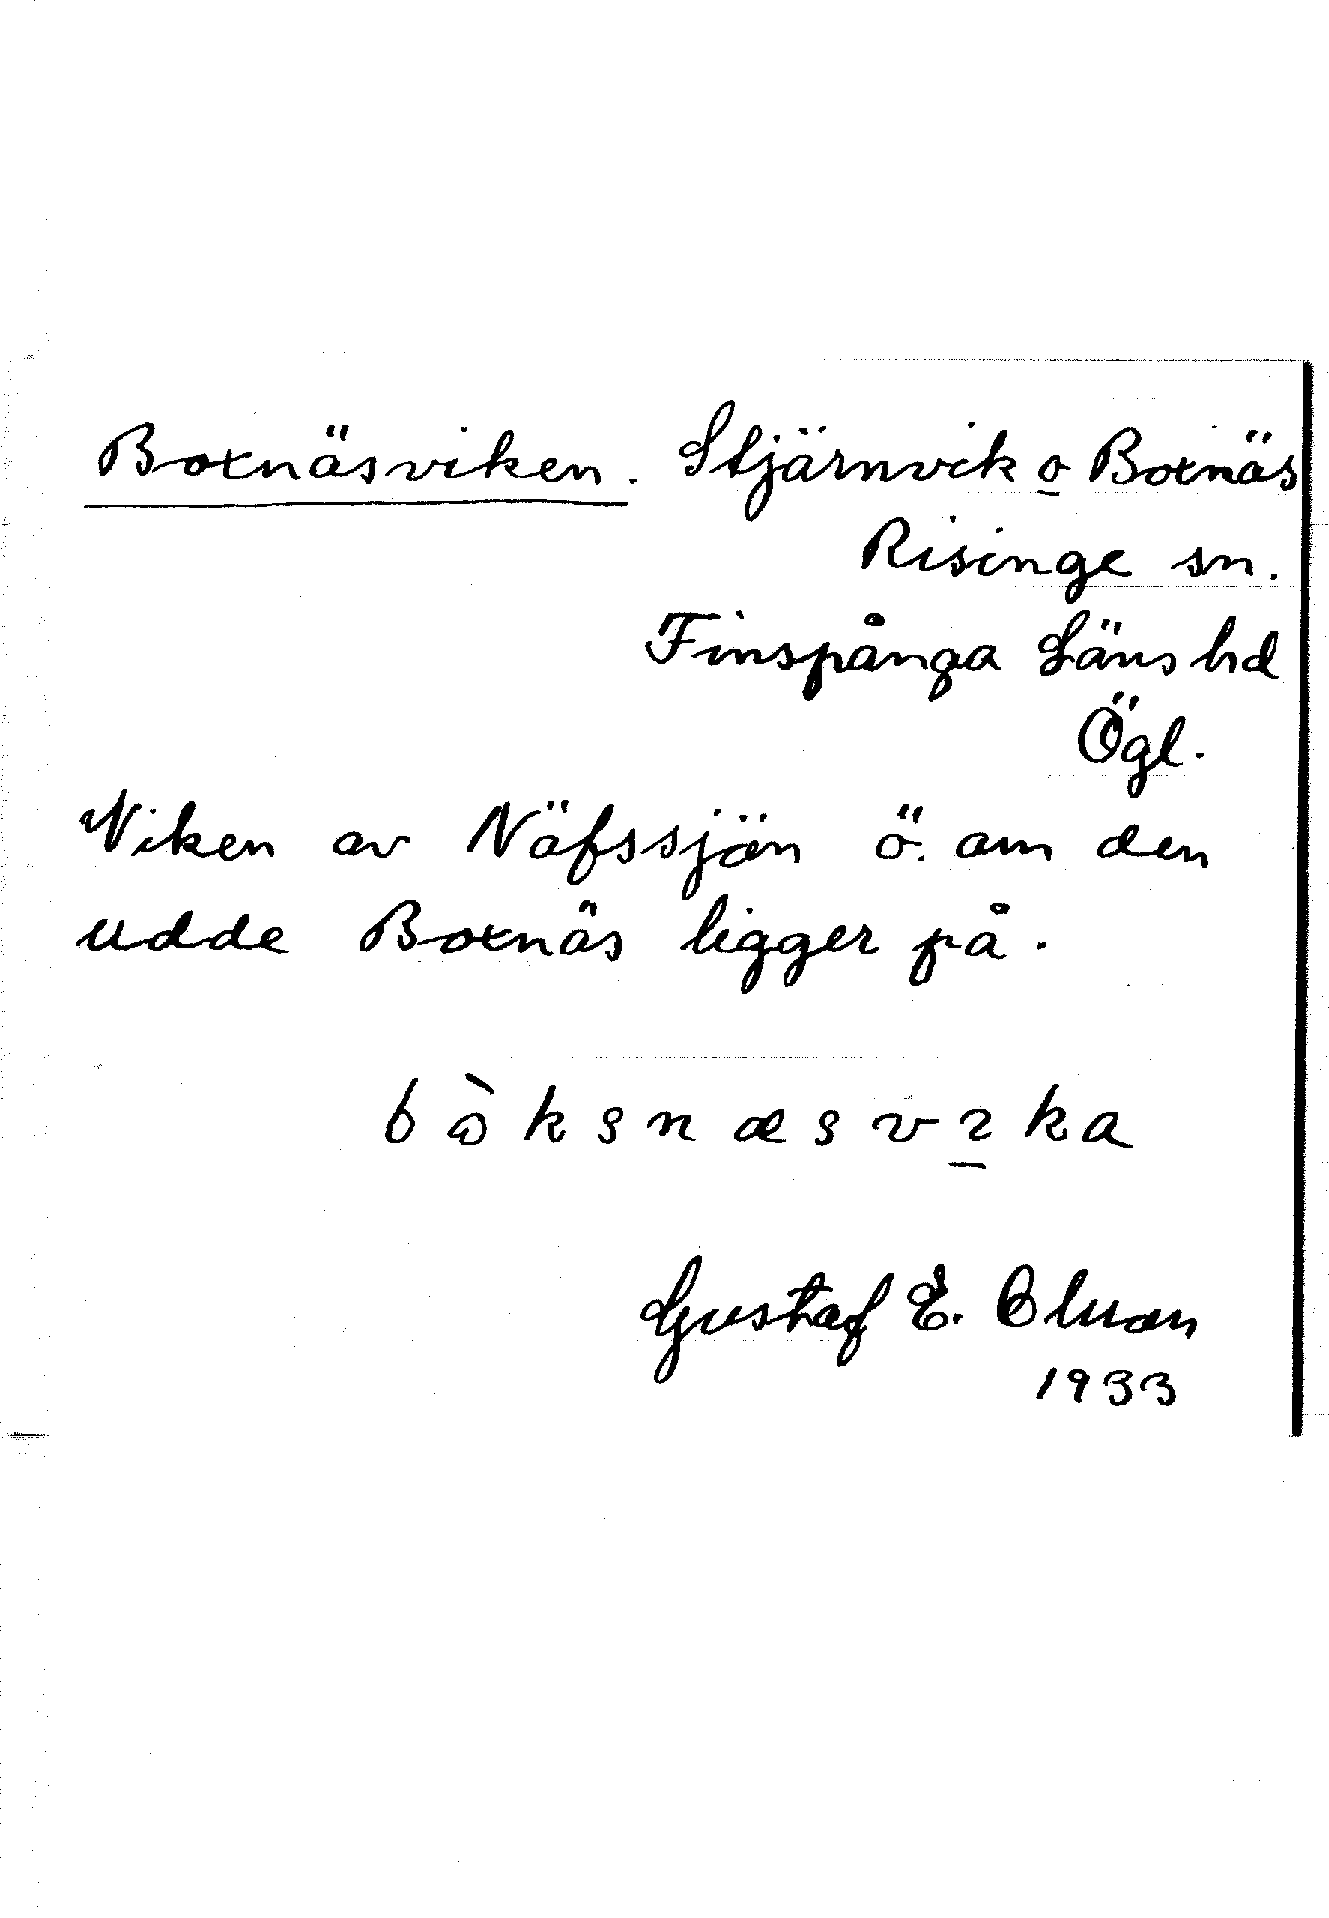 Boxnäsviken. Stjärnvik o Boxnäs
Risinge sn.
Finspånga Läns hd
Ögl.
Viken av Näfssjön ö. om den
udde Boxnäs ligger på.
bòksnæsvɩka
Gustaf E.
1933